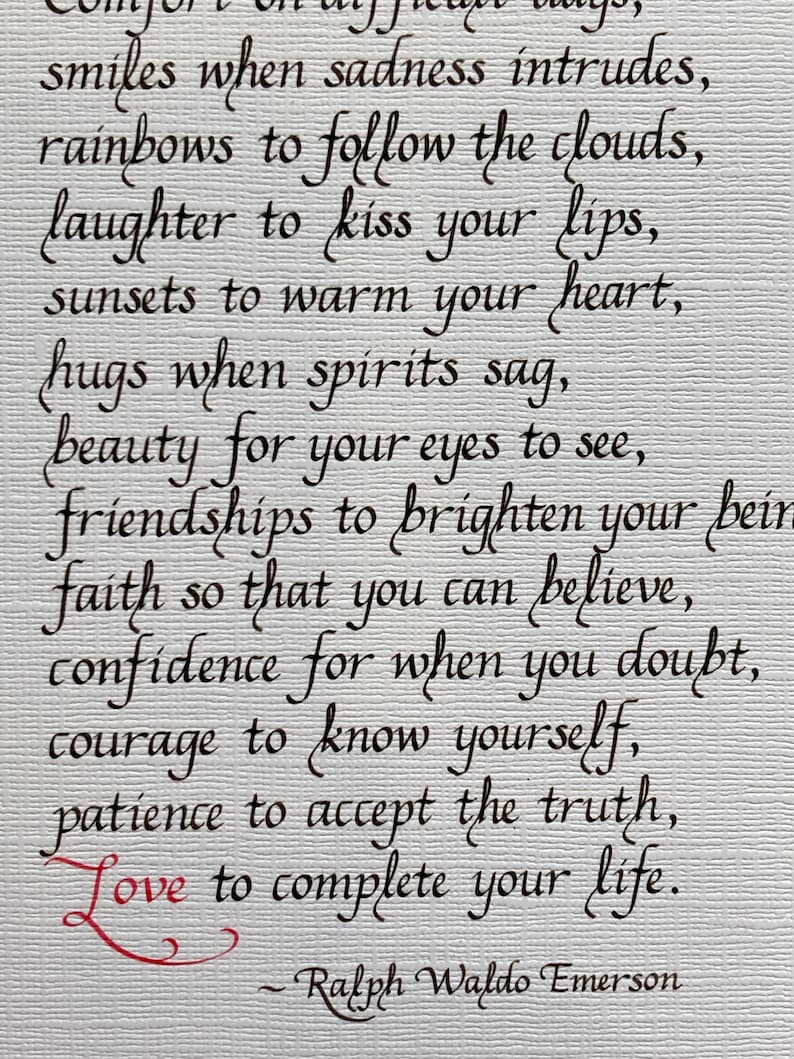 Comfort on difficult days,
smiles when sadness intrudes,
rainbows to follow the clouds,
laughter to kiss your lips,
sunsets to warm your heart,
hugs when spirits sag,
beauty for your eyes to see,
friendships to brighten your bein
faith so that you can believe,
confidence for when you doubt,
courage to know yourself,
patience to accept the truth,
Love to complete your life.
~ Ralph Waldo Emerson